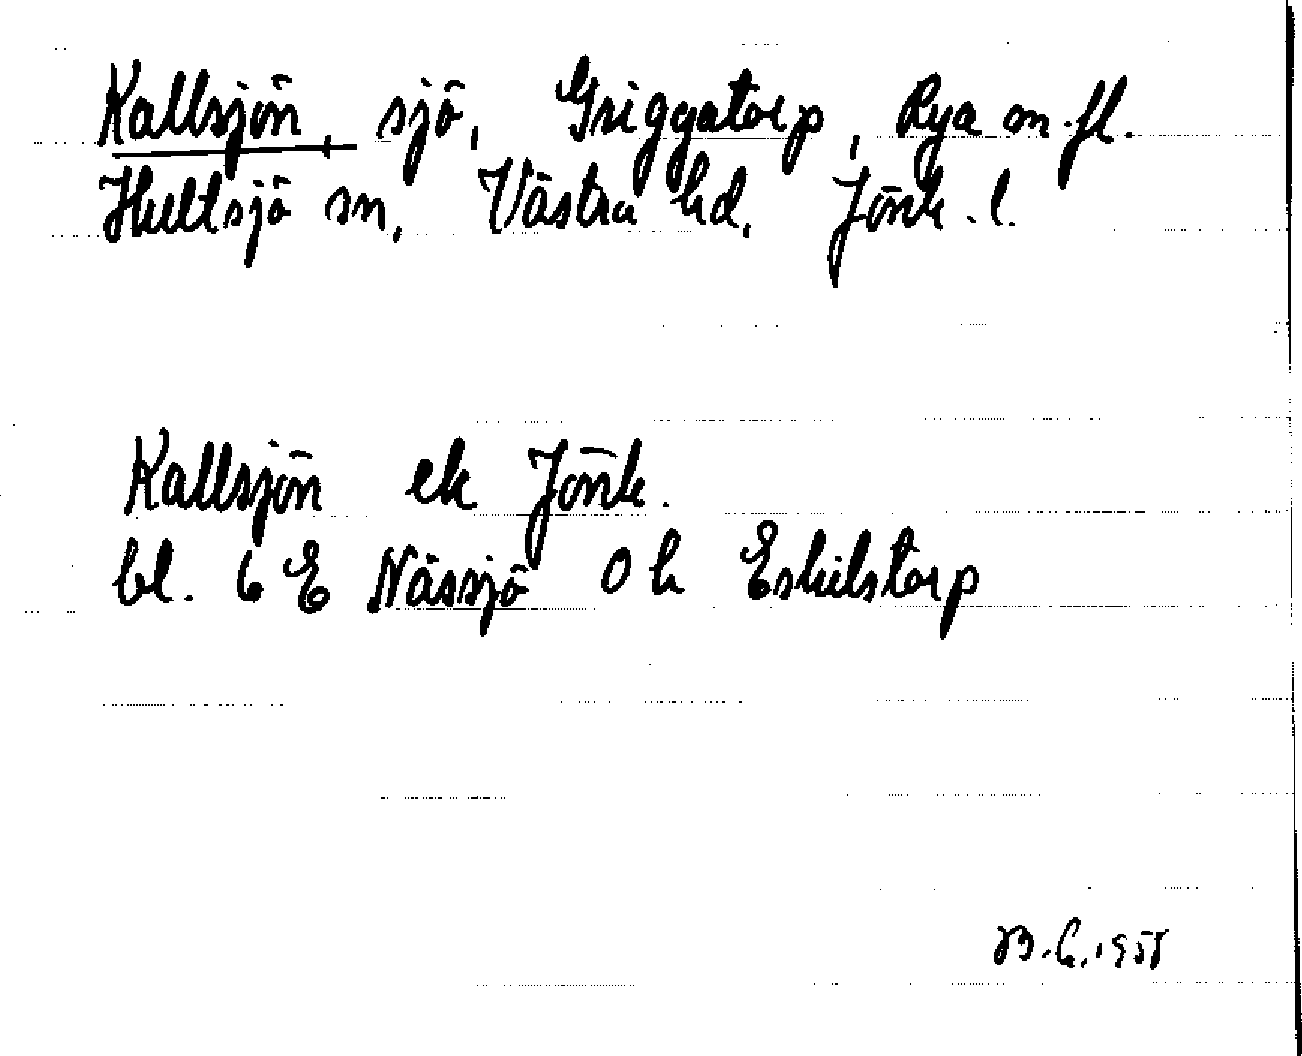 Kallsjön, sjö, Griggatorp, Rya m.fl.
Hultsjö sn, Västra hd, Jönk. l.
Kallsjön ek Jönk.
bl. 6 E Nässjö 0 h Eskilstorp